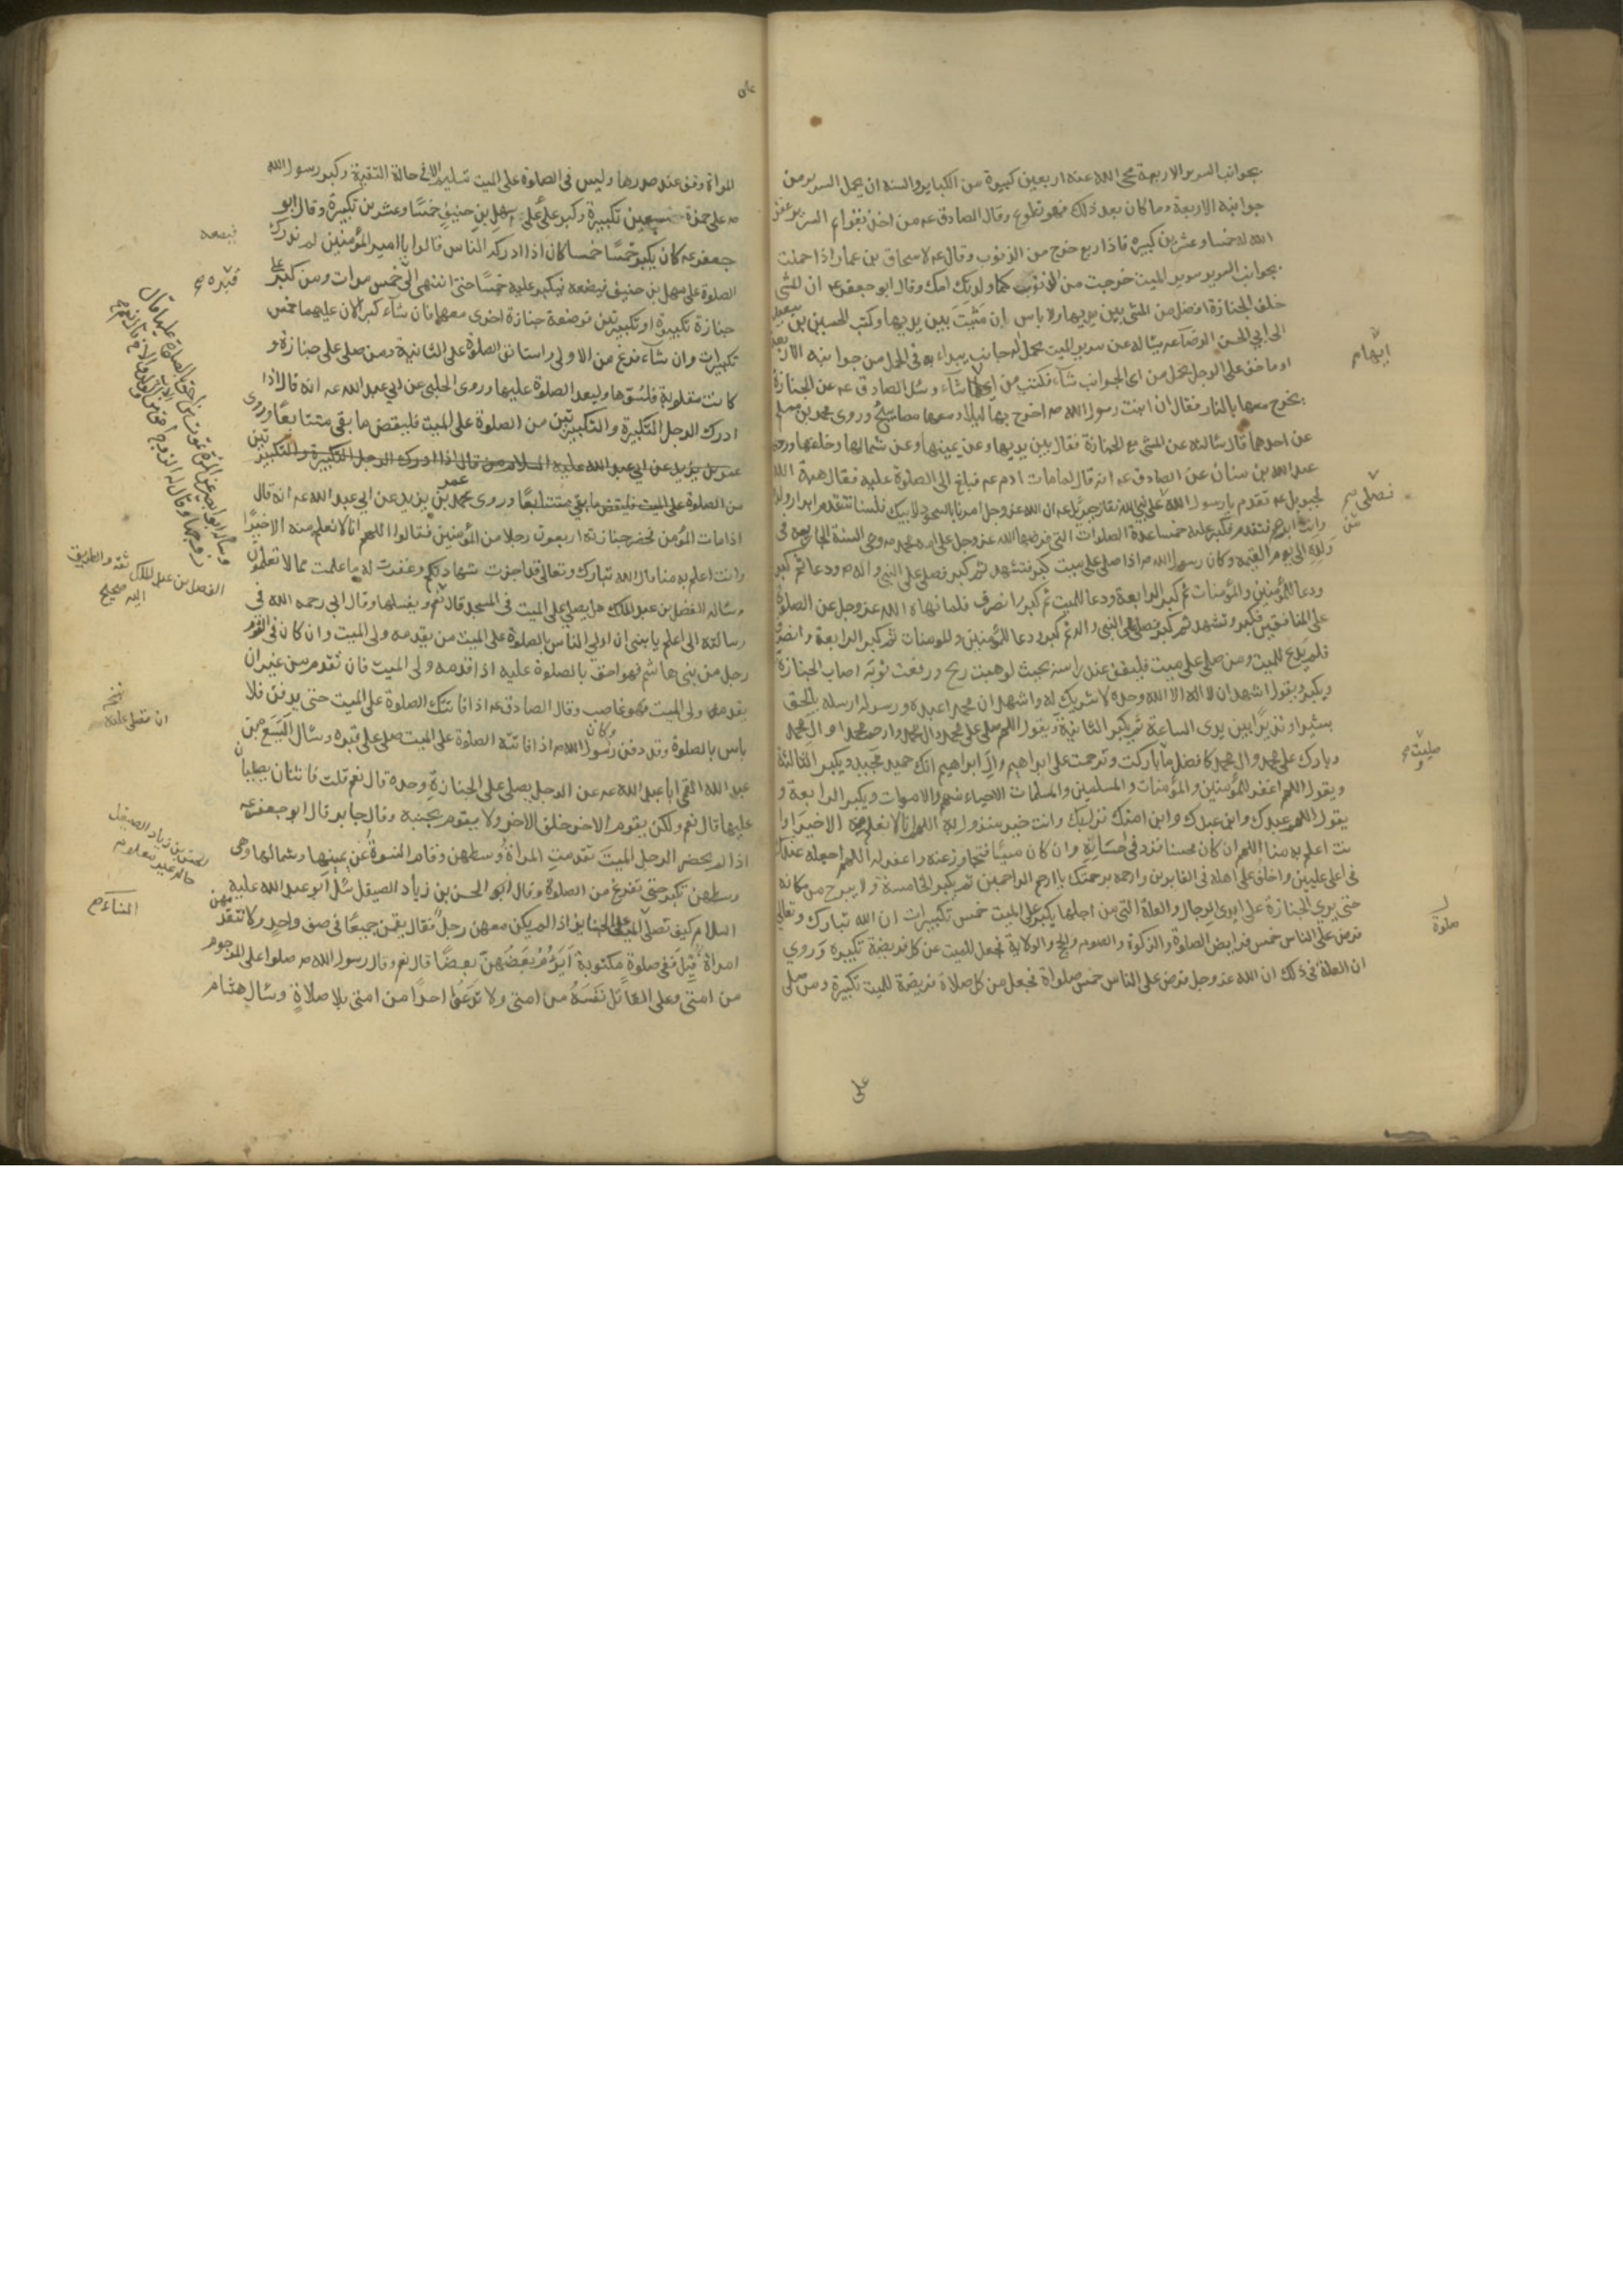 بجوانب السرير الاربعة محى الله عنه اربعين كبيرة من الكباير والسنة ان يحمل السرير من
جوانبه الاربعة وما كان بعد ذلك فهو تطوع وقال الصادق عه من اخذ بقوايم السرير غفر
الله له خمسا وعشرين كبيرة فاذا ربع خرج من الذنوب وقال عه لاسحاق بن عمار اذا حملت
بجوانب السرير سرير الميت خرجت من الذنوب كما ولدتك امك وقال ابو جعفر عه ان المشى
خلف الجنازة افضل من المشى بين يديها ولا باس ان مشيت بين يديها وكتب الحسين بن سعيد
الى ابي الحسن الرضا عه يساله عن سرير الميت يحمل اله جانب يبداء به فى الحمل من جوانبه الاربعة
او ما خف على الرجل يحمل من اى الجوانب شآء فكتب من ايها شآء وسئل الصادق عه عن الجنازة
يخرج معها بالنار فقال ان ابنت رسول الله صه اخرج بها ليلا ومعها مصابيح وروى محمد بن مسلم
عن احدهما قال سالته عن المشى مع الجنازة فقال بين يديها وعن يمينها وعن شمالها وخلفها وروى
عبد الله بن سنان عن الصادق عه انه قال لما مات ادم عه فبلغ الى الصلوة عليه فقال هبة الله
لجبريل عه تقدم يا رسول الله على نبي الله فقال جبريل عه ان الله عز وجل امرنا بالسجود لابيك فلسنا نتقدم ابرار ولده
وانت ابرهم فتقدم فكبر عليه خمسا عدة الصلوات التى فرضها الله عز وجل على امة محمد صه وهى السنة الجارية فى
ولده الى يوم القيمة وكان رسول الله صه اذا صلى على ميت كبر فتشهد ثم كبر فصلى على النبى واله صه ودعا ثم كبر
ودعا للمؤمنين والمؤمنات ثم كبر الرابعة ودعا للميت ثم كبر وانصرف فلما نهاه الله عز وجل عن الصلوة
على المنافقين فكبر وتشهد ثم كبر فصلى على النبى واله ثم كبر ودعا للمؤمنين وللمومنات ثم كبر الرابعة وانصرف
فلم يدع للميت ومن صلى على ميت فليقف عند راسه بحيث لو هبت ريح ورفعت ثوبه اصاب الجنازة
ويكبر ويقول اشهد ان لا اله الا الله وحده لا شريك له واشهد ان محمدا عبده ورسوله ارسله بالحق
بشيرا ونذيرا بين يدى الساعة ثم يكبر الثانية ويقول اللهم صلى على محمد وال محمد وارحم محمدا وال محمد
وبارك على محمد وال محمد كافضل ما باركت وترحمت على ابراهيم وال ابراهيم انك حميد مجيد ويكبر الثالثة
ويقول اللهم اغفر للمؤمنين والمؤمنات والمسلمين والمسلمات الاحياء منهم والاموات ويكبر الرابعة و
يقول اللهم عبدك وابن عبدك وابن امتك نزل بك وانت خير منزول به اللهم انا لا نعلم منه الا خيرا وا
نت اعلم به منا اللهم ان كان محسنا فزد فى احسانه وان كان مسيئا فتجاوز عنه واغفر له اللهم اجعله عندك
فى اعلى عليين واخلف على اهله فى الغابرين وارحمه برحمتك يا ارحم الراحمين ثم يكبر الخامسة ولا يبرح من مكانه
حتى يرى الجنازة على ايدى الرجال والعلة التى من اجلها يكبر على الميت خمس تكبيرات ان الله تبارك وتعالى
فرض على الناس خمس فرايض الصلوة والزكوة والصوم والحج والولاية فجعل للميت عن كل فريضة تكبيره وروي
ان العلة فى ذلك ان الله عز وجل فرض على الناس خمس صلواة فجعل من كل صلاة فريضة للميت تكبيرة ومن صلى
على
ايهام
فصلى
صليت
صلوة
المراة وقف عند صدرها وليس فى الصلوة على الميت تسليم الا فى حالة التقية وكبر رسول الله
صه على حمزة سبعين تكبيرة وكبر على على سهل بن حنيف خمسا وعشرين تكبيرة وقال ابو
جعفر عه كان يكبر خمسا خمسا كان اذا ادركه الناس قالوا يا امير المؤمنين لم ندرك
الصلوة على سهل بن حنيف فيضعه فيكبر عليه خمسا حتى انتهى الى خمس مرات ومن كبر على
جنازة تكبيرة او تكبيرتين فوضعة جنازة اخرى معها فان شآء كبر الان عليهما خمس
تكبيرات وان شآء فرغ من الاولى واستانف الصلوة على الثانية ومن صلى على جنازة و
كانت مقلوبة فلتسوها وليعد الصلوة عليها وروى الحلبى عن ابي عبد الله عه انه قال اذا
ادرك الرجل التكبيرة والتكبيرتين من الصلوة على الميت فليقض ما بقى متتابعا وروى
عمر بن يزيد عن ابي عبد الله عليه السلام من قال اذا ادرك الرجل التكبيرة والتكبيرتين
من الصلوة على الميت فليقض ما بقى متتابعا وروى محمد بن عمر بن يزيد عن ابي عبد الله عه انه قال
اذا مات المؤمن فحضر جنازته اربعون رجلا من المؤمنين فقالوا اللهم انا لا نعلم منه الا خيرا
وانت اعلم به منا قال الله تبارك وتعالى قد اجزت شهادتكم وغفرت له ما علمت مما لا تعلمون
وساله الفضل بن عبد الملك هل يصلى على الميت فى المسجد قال نعم وبغسلها وقال ابى رحمه الله فى
رسالته الى اعلم يا بنى ان اولى الناس بالصلوة على الميت من يقدمه ولى الميت وان كان فى القوم
رجل من بنى هاشم فهو احق بالصلوة عليه اذا قدمه ولى الميت فان تقدم من غير ان
يقدمه ولى الميت فهو غاصب وقال الصادق عه اذا فاتتك الصلوة على الميت حتى يدفن فلا
باس بالصلوة وقد دفن وكان رسول الله صه اذا فاتته الصلوة على الميت صلى على قبره وسال اليسع بن
عبد الله القمى ابا عبد الله عه عن الرجل يصلى على الجنازة وحده قال نعم قلت فاثنان يصليان
عليها قال نعم ولكن يقوم الاخر خلف الاخر ولا يقوم بجنبه وقال جابر قال ابو جعفر عه
اذا لم يحضر الرجل الميت تقدمت المراة وسطهن وقام النسوة عن يمينها وشمالها وهى
وسطهن تكبر حتى تفرغ من الصلوة وقال ابو الحسن بن زياد الصيقل سئل ابو عبد الله عليه
السلام كيف تصلى النساء على الجنايز اذا لم يكن معهن رجل فقال يقمن جميعا فى صف واحد ولا تتقدمهن
امراة قيل ففى صلوة مكتوبة ايؤم بعضهن بعضا قال نعم وقال رسول الله صه صلوا على المرجوم
من امتى وعلى القاتل نفسه من امتى ولا تدعوا احدا من امتى بلا صلاة وسال هشام
قبره
الفضل بن عبد الملك ثقة والطريق
اليه صحيح
الحسن بن زياد الصيقل
حاله غير معلوم
النساء